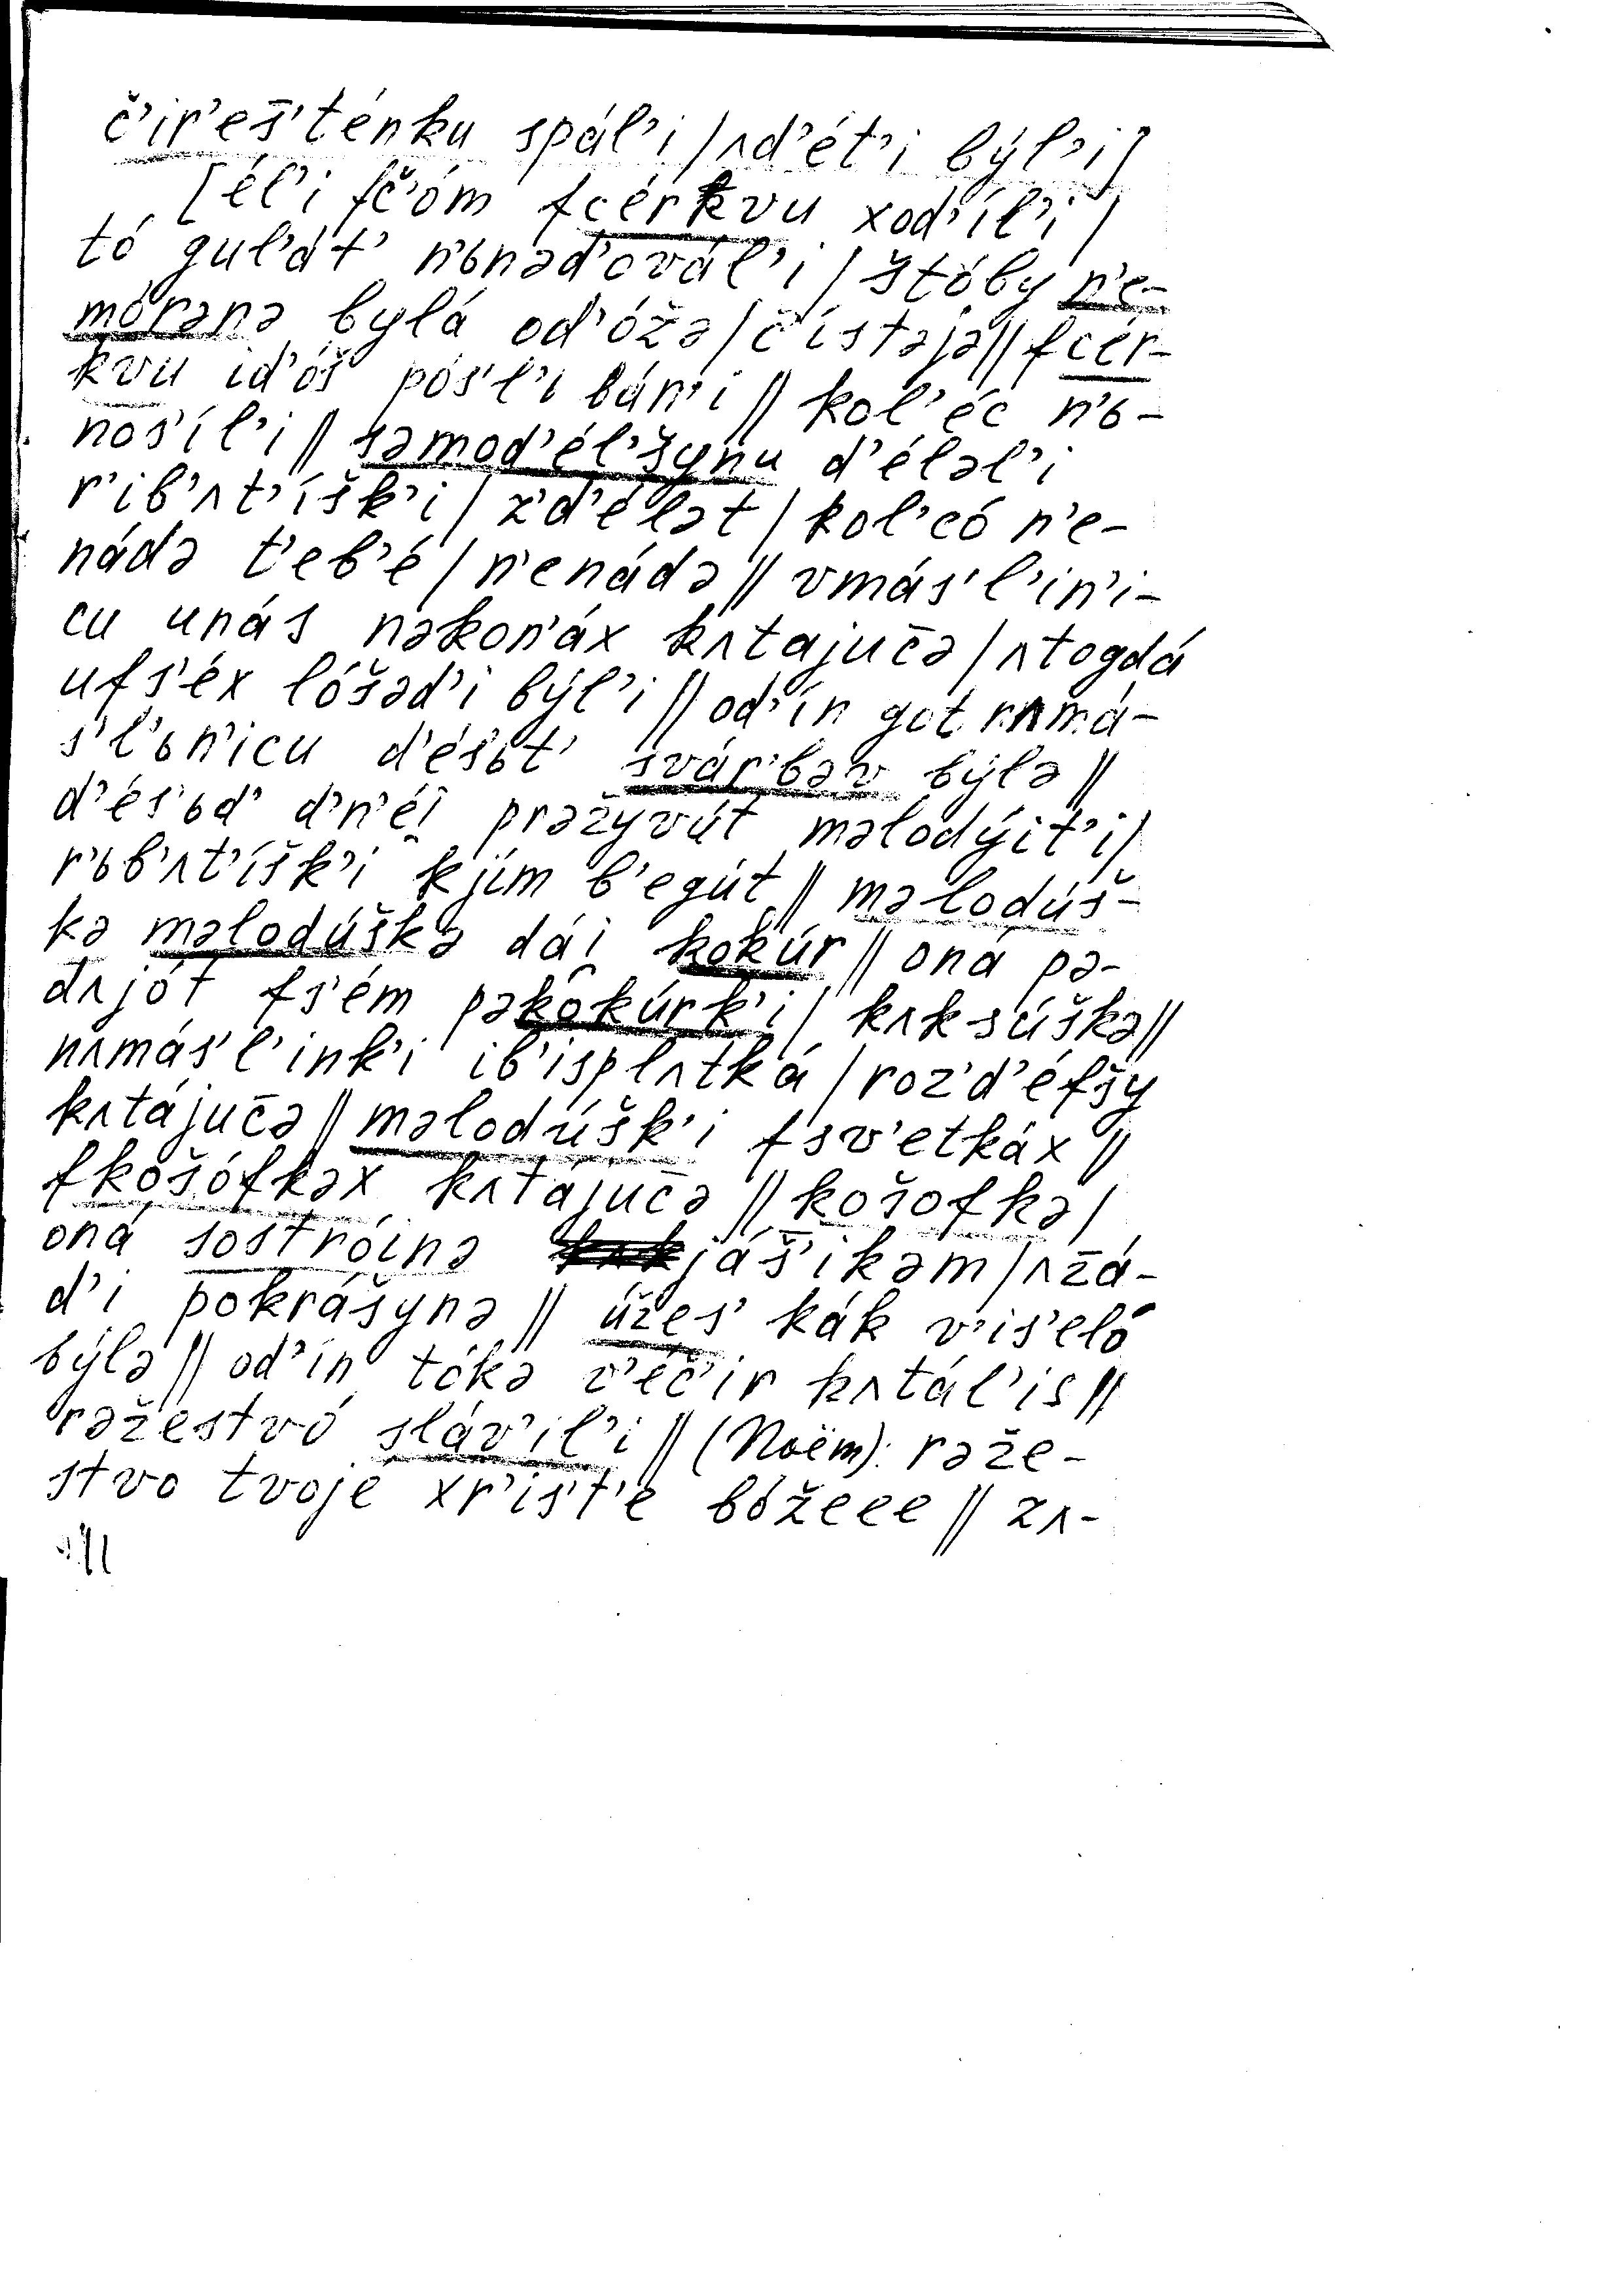 č’ir’eš’ténku spál’i / ʌd’ét’i býl’i]
[él’i fč’óm fcérkvu xod’íl’i /
tó gul’át’ n’ьnəd’ovál’i / štóby n’e-
mórənə bylá od’óžə / č’ístəjə // fcér-
kvu id’óš pós’l’i bán’i // kol’éc n’ь-
nos’íl’i // səmod’él’šynu d’éləl’i
r’ib’ʌt’íšk’i / z’d’élət / kol’có n’e-
nádə t’eb’é / n’enádə // vmás’l’in’i-
cu unás nəkon’áx kʌtajučə / ʌtogdá
ufs’éx lóšəd’i býl’i // od’ín got nʌmá-
s’l’ьn’icu d’és’ьt’ svár’bəv býlə //
d’és’ьd’ d’n’éi̯ prəžyvút məlodýit’i /
r’ьb’ʌt’íšk’i kjím b’egút // məlodúš-
kə məlodúškə dái kokúr // oná pə-
dʌjót fs’ém pəkokúrk’i / kʌksúškə //
nʌmás’l’ink’i ib’isplʌtká / roz’d’éfšy
kʌtájučə // məlodúšk’i fsv’etkáx //
fkošófkəx kʌtájučə // košofkə /
oná sostróinə jáš’ikəm / ʌzá-
d’i pokrášynə // úžes’ kák v’is’eló
býlə // od’ín tókə v’éč’ir kʌtál’is //
rəžestvó sláv’il’i // (Поём): rəže-
stvo tvojé xr’is’t’é bóžeee // zʌ-